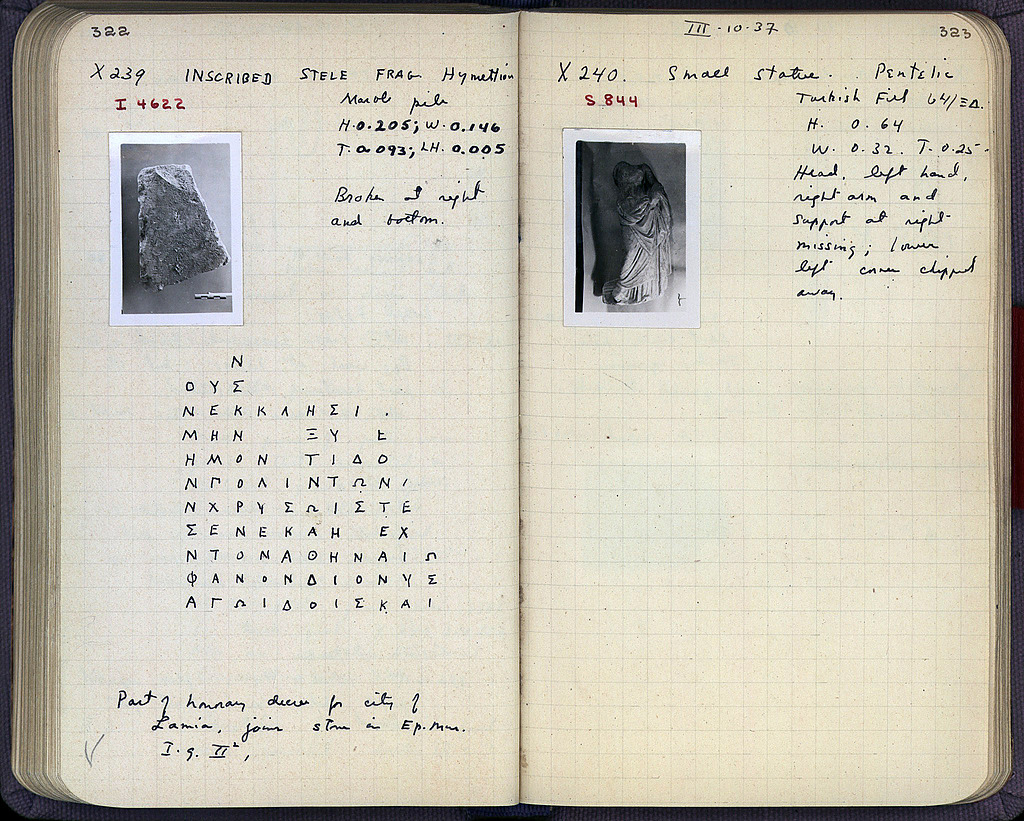 322
X 239 INSCRIBED STELE FRAG Hymettian
I 4622
H. 0.205; W. 0.146
T. 0.093; LH. 0.005
Broken at right
and bottom.
Ν
Ο Υ Σ
Ν Ε Κ Κ Λ Η Σ Ι .
Μ Η Ν Ξ Υ
Η Μ Ο Ν Τ Ι Δ Ο
Ν Γ Ο Λ Ι Ν Τ Ω Ν
Ν Χ Ρ Υ Σ Ω Ι Σ Τ Ε
Σ Ε Ν Ε Κ Α Η Ε Χ
Ν Τ Ο Ν Α Θ Η Ν Α Ι Ω
Φ Α Ν Ο Ν Δ Ι Ο Ν Υ Σ
Α Γ Ω Ι Δ Ο Ι Σ Κ Α Ι
Part of honorary decree for city of
Lamia, joins stone in Ep. Mus.
I. g. II²,
III - 10 - 37
323
X 240. Small statue. Pentelic
S 844
Turkish Fill 64/ΞΔ.
H. 0.64
W. 0.32. T. 0.25
Head, left hand,
right arm and
support at right
missing; lower
left corner chipped
away.